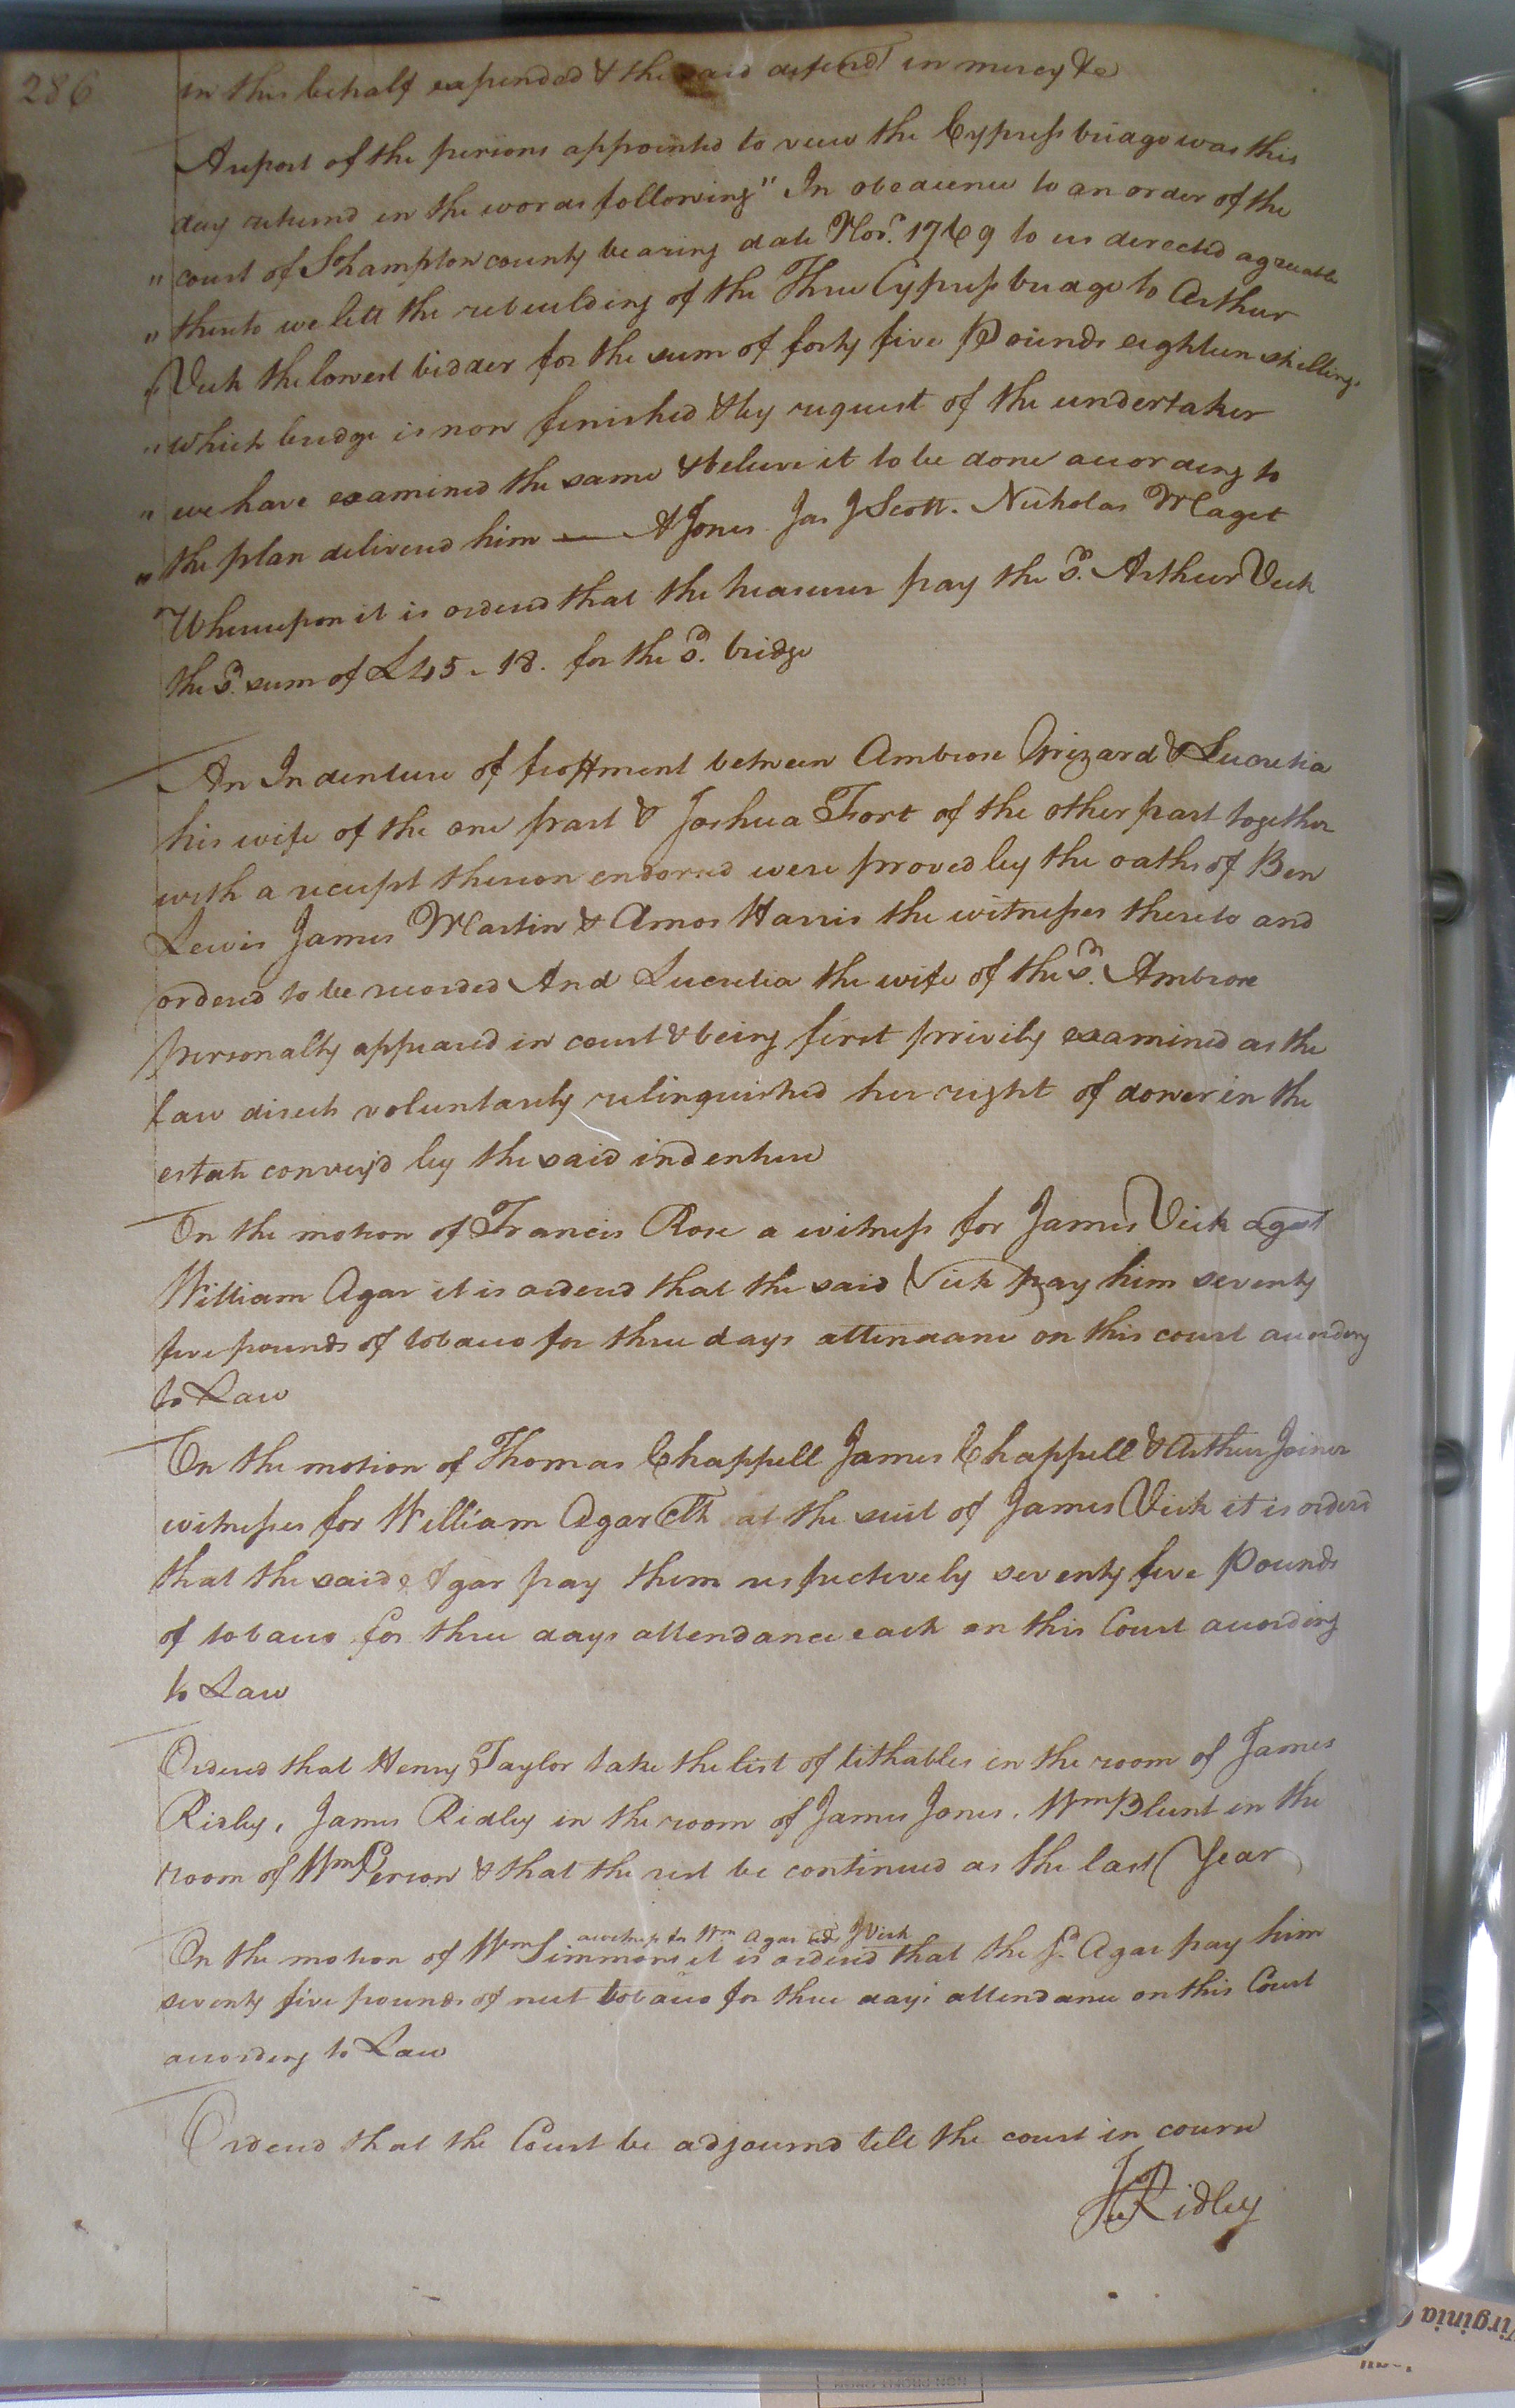 286
in this behalf expended & the said defend.t in mercy &c
A report of the persons appointed to view the Cypress bridge was this
day returnd in the words following" In obedience to an order of the
" court of Sohampton county bearing date Nov.r 1769 to us directed agreeable
" thereto we lett the rebuilding of the Three Cypress bridge to Arthur
" Vick the lowest bidder for the sum of forty five Pounds eighteen shillings
" which bridge is now finished & by request of the undertaker
" we have examined the same & beleive it to be done according to
" the plan deliverd him — A Jones Jas J Scott. Nicholas Maget
Whereupon it is orderd that the treasurer pay the s.d Arthur Vick
the s.d sum of £45.18. for the s.d bridge
An Indenture of feoffment between Ambrose Grizard & Lucretia
his wife of the one part & Joshua Fort of the other part together
with a receipt thereon endorsed were proved by the oaths of Ben
Lewis James Martin & Amos Harris the witnesses thereto and
orderd to be recorded And Lucretia the wife of the s.d Ambrose
personally appeared in court & being first privily examined as the
law directs voluntarily relinquished her right of dower in the
estate convey'd by the said indenture
On the motion of Francis Rose a witness for James Vick agst
William Agar it is orderd that the said Vick pay him seventy
five pounds of tobacco for three days attendance on this court according
to Law
On the motion of Thomas Chappell James Chappell & Arthur Joiner
witnesses for William Agar at the suit of James Vick it is orderd
that the said Agar pay them respectively seventy five Pounds
of tobacco for three days attendance each on this Court according
to Law
Orderd that Henry Taylor take the list of tithables in the room of James
Ridley, James Ridley in the room of James Jones, Wm Blunt in the
room of Wm Person & that the rest be continued as the last Year
a witness for Wm Agar ads J Vick
On the motion of Wm Simmons it is orderd that the s.d Agar pay him
seventy five pounds of nett tobacco for three days attendance on this Court
according to Law
Orderd that the Court be adjournd till the court in course
Jas Ridley
Virginia